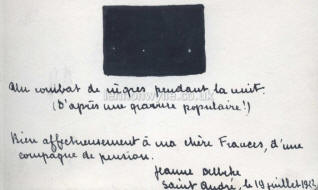 Un combat de nègres pendant la nuit.
(D'après une gravure populaire!)
lennonwylie.co.uk
Bien affectueusement à ma chère Frances, d'une
compagne de pension.
Jeanne
Saint André, le 19 juillet